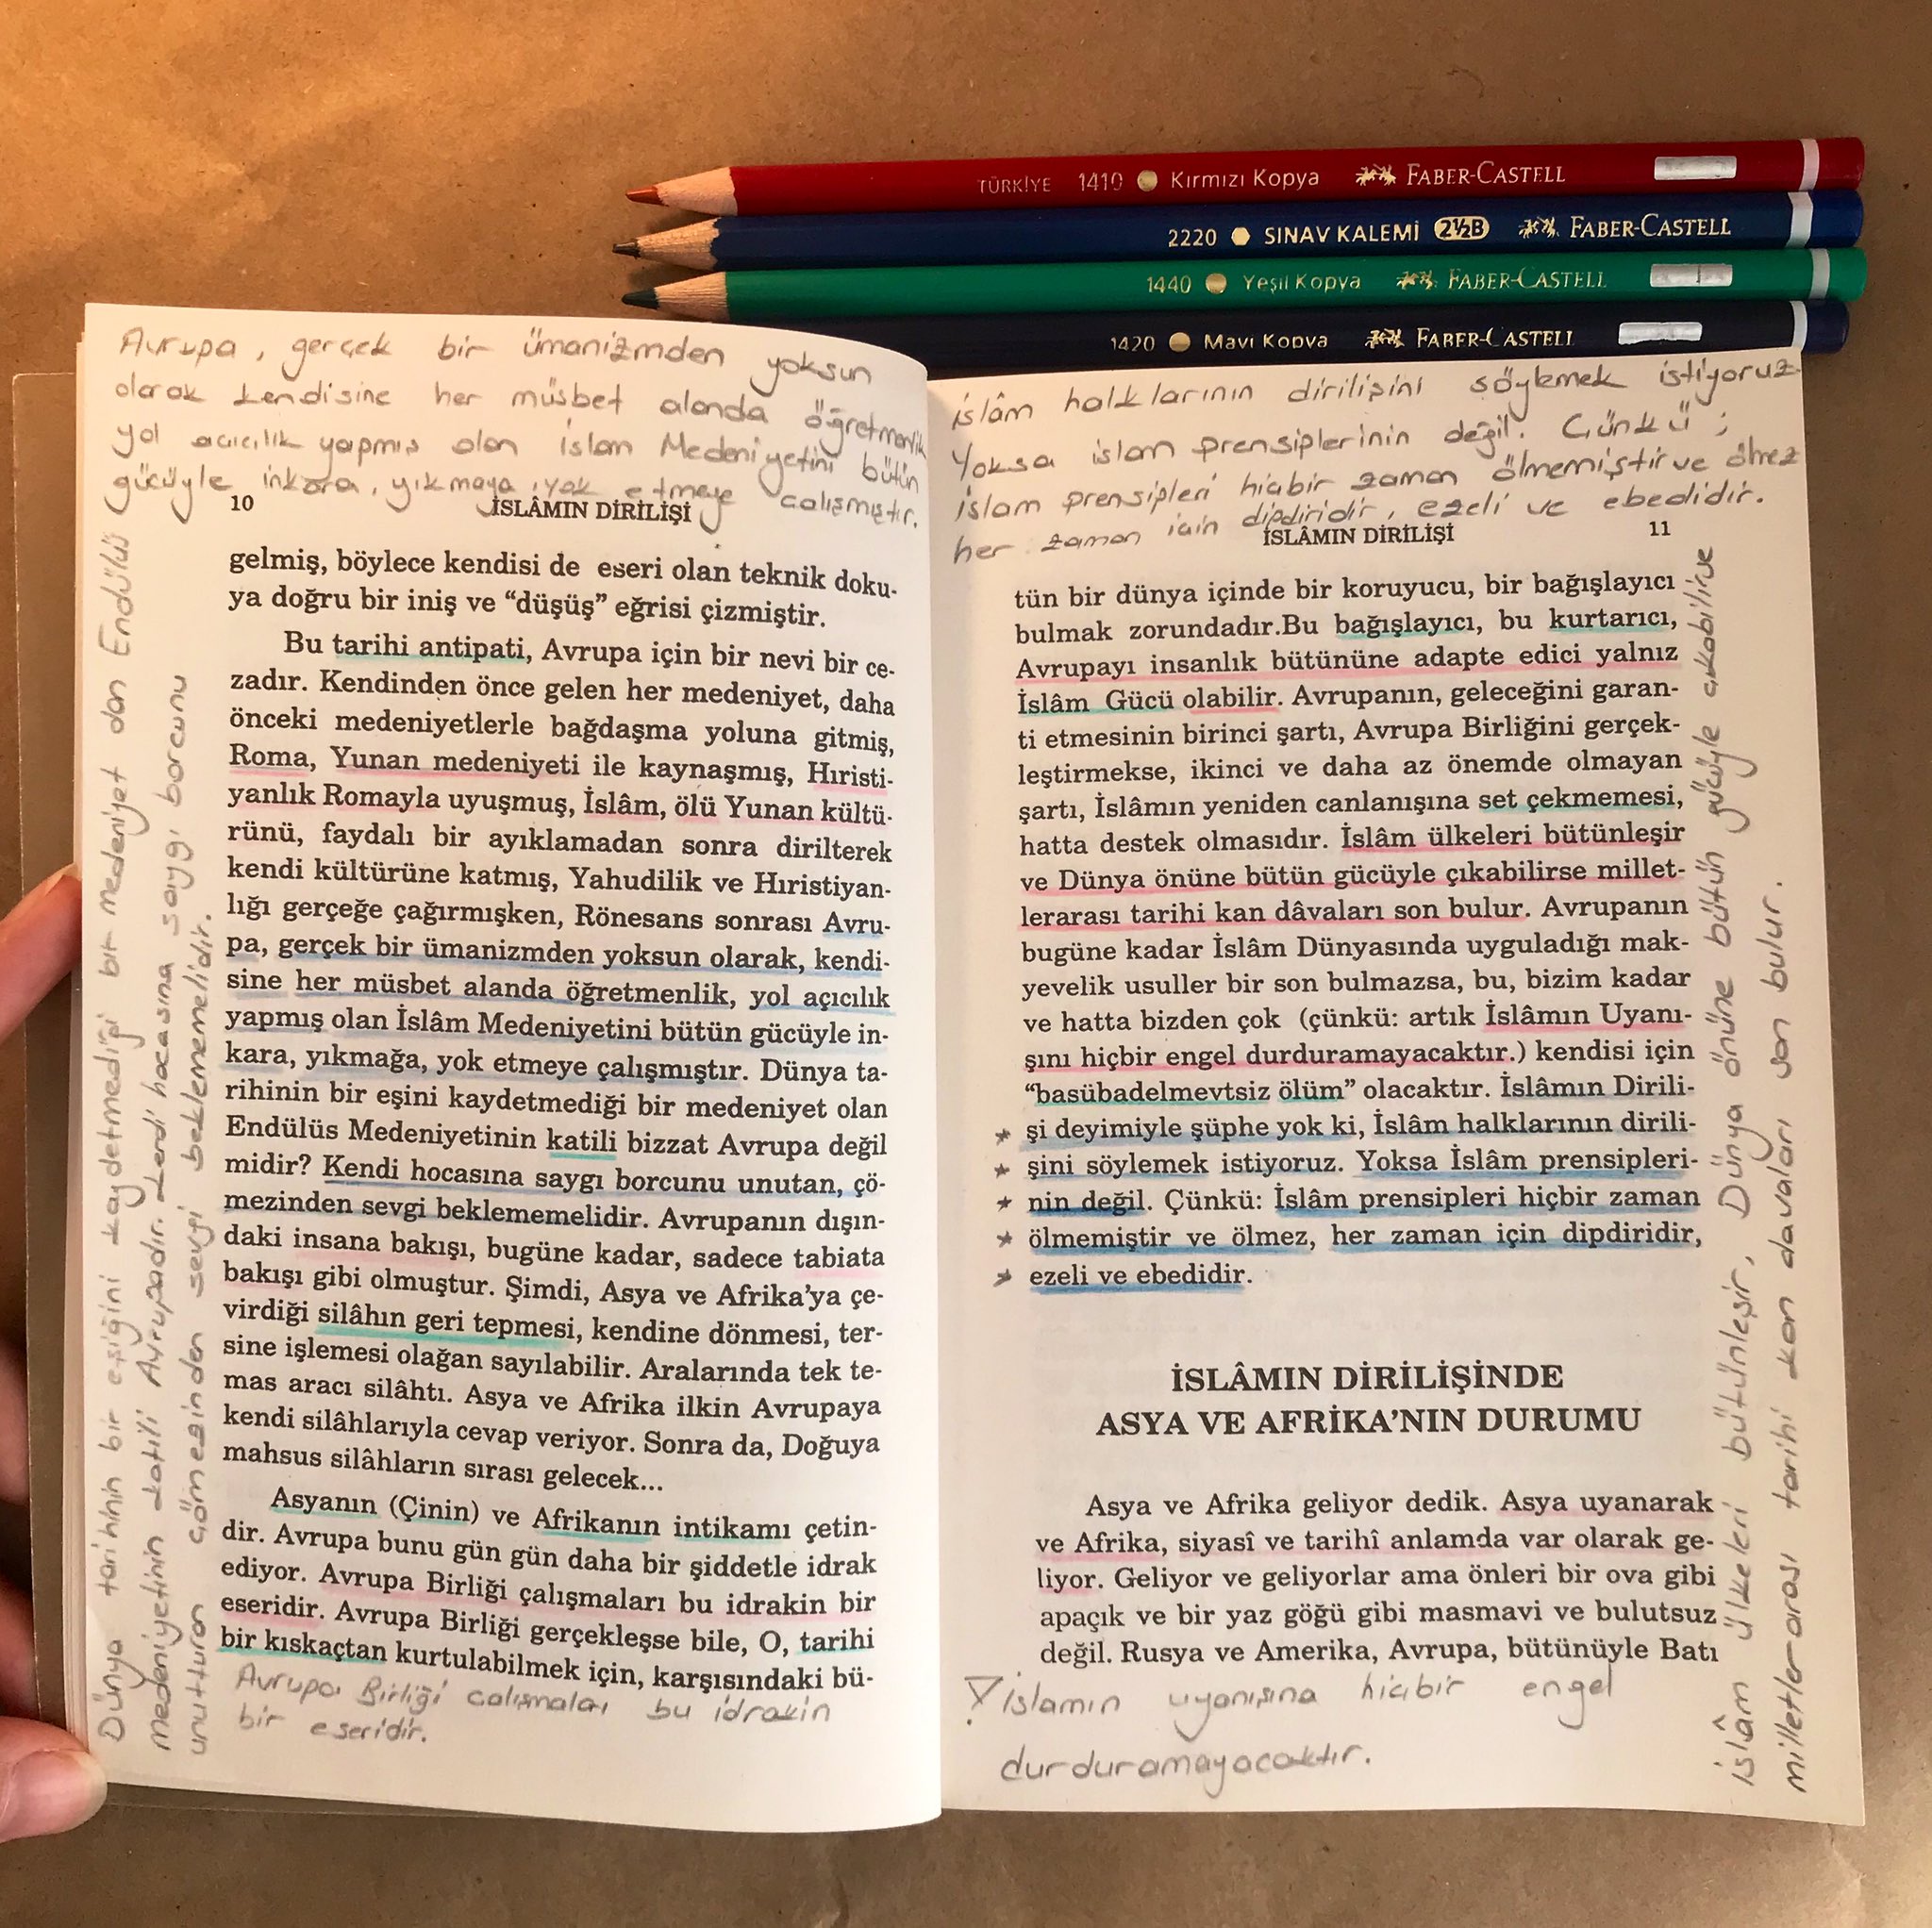 TÜRKİYE 1410 Kırmızı Kopya FABER-CASTELL
2220 SINAV KALEMİ 2½B FABER-CASTELL
1440 Yeşil Kopya FABER-CASTELL
1420 Mavi Kopya FABER-CASTELL
Avrupa, gerçek bir ümanizmden yoksun
olarak kendisine her müsbet alanda öğretmenlik
yol açıcılık yapmış olan İslam Medeniyetini bütün
gücüyle inkara, yıkmaya, yok etmeye çalışmıştır.
10 İSLÂMIN DİRİLİŞİ
gelmiş, böylece kendisi de eseri olan teknik doku-
ya doğru bir iniş ve “düşüş” eğrisi çizmiştir.
Bu tarihi antipati, Avrupa için bir nevi bir ce-
zadır. Kendinden önce gelen her medeniyet, daha
önceki medeniyetlerle bağdaşma yoluna gitmiş,
Roma, Yunan medeniyeti ile kaynaşmış, Hıristi-
yanlık Romayla uyuşmuş, İslâm, ölü Yunan kültü-
rünü, faydalı bir ayıklamadan sonra dirilterek
kendi kültürüne katmış, Yahudilik ve Hıristiyan-
lığı gerçeğe çağırmışken, Rönesans sonrası Avru-
pa, gerçek bir ümanizmden yoksun olarak, kendi-
sine her müsbet alanda öğretmenlik, yol açıcılık
yapmış olan İslâm Medeniyetini bütün gücüyle in-
kara, yıkmağa, yok etmeye çalışmıştır. Dünya ta-
rihinin bir eşini kaydetmediği bir medeniyet olan
Endülüs Medeniyetinin katili bizzat Avrupa değil
midir? Kendi hocasına saygı borcunu unutan, çö-
mezinden sevgi beklememelidir. Avrupanın dışın-
daki insana bakışı, bugüne kadar, sadece tabiata
bakışı gibi olmuştur. Şimdi, Asya ve Afrika’ya çe-
virdiği silâhın geri tepmesi, kendine dönmesi, ter-
sine işlemesi olağan sayılabilir. Aralarında tek te-
mas aracı silâhtı. Asya ve Afrika ilkin Avrupaya
kendi silâhlarıyla cevap veriyor. Sonra da, Doğuya
mahsus silâhların sırası gelecek...
Asyanın (Çinin) ve Afrikanın intikamı çetin-
dir. Avrupa bunu gün gün daha bir şiddetle idrak
ediyor. Avrupa Birliği çalışmaları bu idrakin bir
eseridir. Avrupa Birliği gerçekleşse bile, O, tarihi
bir kıskaçtan kurtulabilmek için, karşısındaki bü-
Avrupa Birliği çalışmaları bu idrakin
bir eseridir.
Dünya tarihinin bir eşiğini kaydetmediği bir medeniyet olan Endülüs
medeniyetinin katili Avrupadır. Kendi hocasına saygı borcunu
unuturan çömezinden sevgi beklememelidir.
İslâm halklarının dirilişini söylemek istiyoruz.
Yoksa islam prensiplerinin değil. Çünkü;
İslam prensipleri hiçbir zaman ölmemiştir ve ölmez
her zaman için dipdiridir, ezeli ve ebedidir.
İSLÂMIN DİRİLİŞİ 11
tün bir dünya içinde bir koruyucu, bir bağışlayıcı
bulmak zorundadır.Bu bağışlayıcı, bu kurtarıcı,
Avrupayı insanlık bütününe adapte edici yalnız
İslâm Gücü olabilir. Avrupanın, geleceğini garan-
ti etmesinin birinci şartı, Avrupa Birliğini gerçek-
leştirmekse, ikinci ve daha az önemde olmayan
şartı, İslâmın yeniden canlanışına set çekmemesi,
hatta destek olmasıdır. İslâm ülkeleri bütünleşir
ve Dünya önüne bütün gücüyle çıkabilirse millet-
lerarası tarihi kan dâvaları son bulur. Avrupanın
bugüne kadar İslâm Dünyasında uyguladığı mak-
yevelik usuller bir son bulmazsa, bu, bizim kadar
ve hatta bizden çok (çünkü: artık İslâmın Uyanı-
şını hiçbir engel durduramayacaktır.) kendisi için
“basübadelmevtsiz ölüm” olacaktır. İslâmın Dirili-
şi deyimiyle şüphe yok ki, İslâm halklarının dirili-
şini söylemek istiyoruz. Yoksa İslâm prensipleri-
nin değil. Çünkü: İslâm prensipleri hiçbir zaman
ölmemiştir ve ölmez, her zaman için dipdiridir,
ezeli ve ebedidir.
İSLÂMIN DİRİLİŞİNDE
ASYA VE AFRİKA’NIN DURUMU
Asya ve Afrika geliyor dedik. Asya uyanarak
ve Afrika, siyasî ve tarihî anlamda var olarak ge-
liyor. Geliyor ve geliyorlar ama önleri bir ova gibi
apaçık ve bir yaz göğü gibi masmavi ve bulutsuz
değil. Rusya ve Amerika, Avrupa, bütünüyle Batı
İslamın uyanışına hiçbir engel
durduramayacaktır.
İslâm ülkeleri bütünleşir, Dünya önüne bütün gücüyle çıkabilirse
milletler arası tarihi kan davaları son bulur.